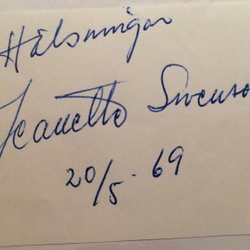 Hälsningar
Jeanette Swenso
20/5-69